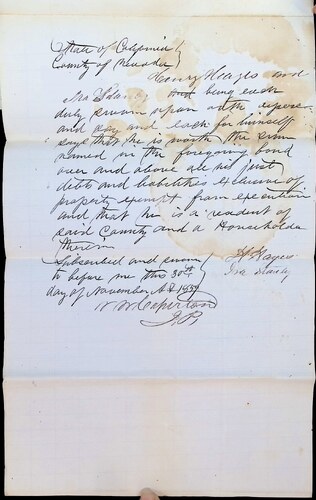 State of California }
County of Nevada }
Henry Hayes and
being each
duly sworn upon oath depose
and say and each for himself
says that he is worth the sum
named in the foregoing bond
over and above all his just
debts and liabilities exclusive of
property exempt from execution
and that he is a resident of
said County and a Householder
therein
Subscribed and sworn
to before me this 30th
day of November A.D.
Hayes
Ira
J.P.